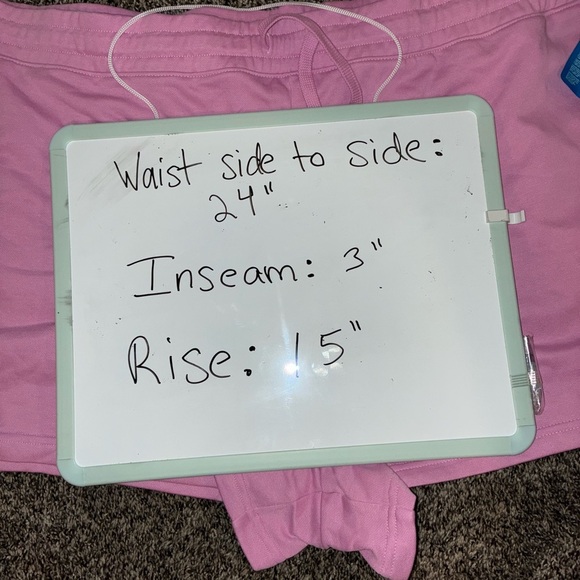 Waist side to side:
24"
Inseam: 3"
Rise: 15"